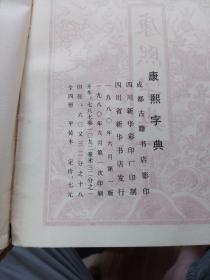 康熙
康熙字典
成都古籍书店影印
四川新华彩印厂印刷
四川省新华书店发行
一九八〇年六月第一版
一九八〇年六月第一次印刷
开本:七八七×一〇九二毫米三二分之一
印张:六〇又三二分之十八
全四册 平装本 定价:七元